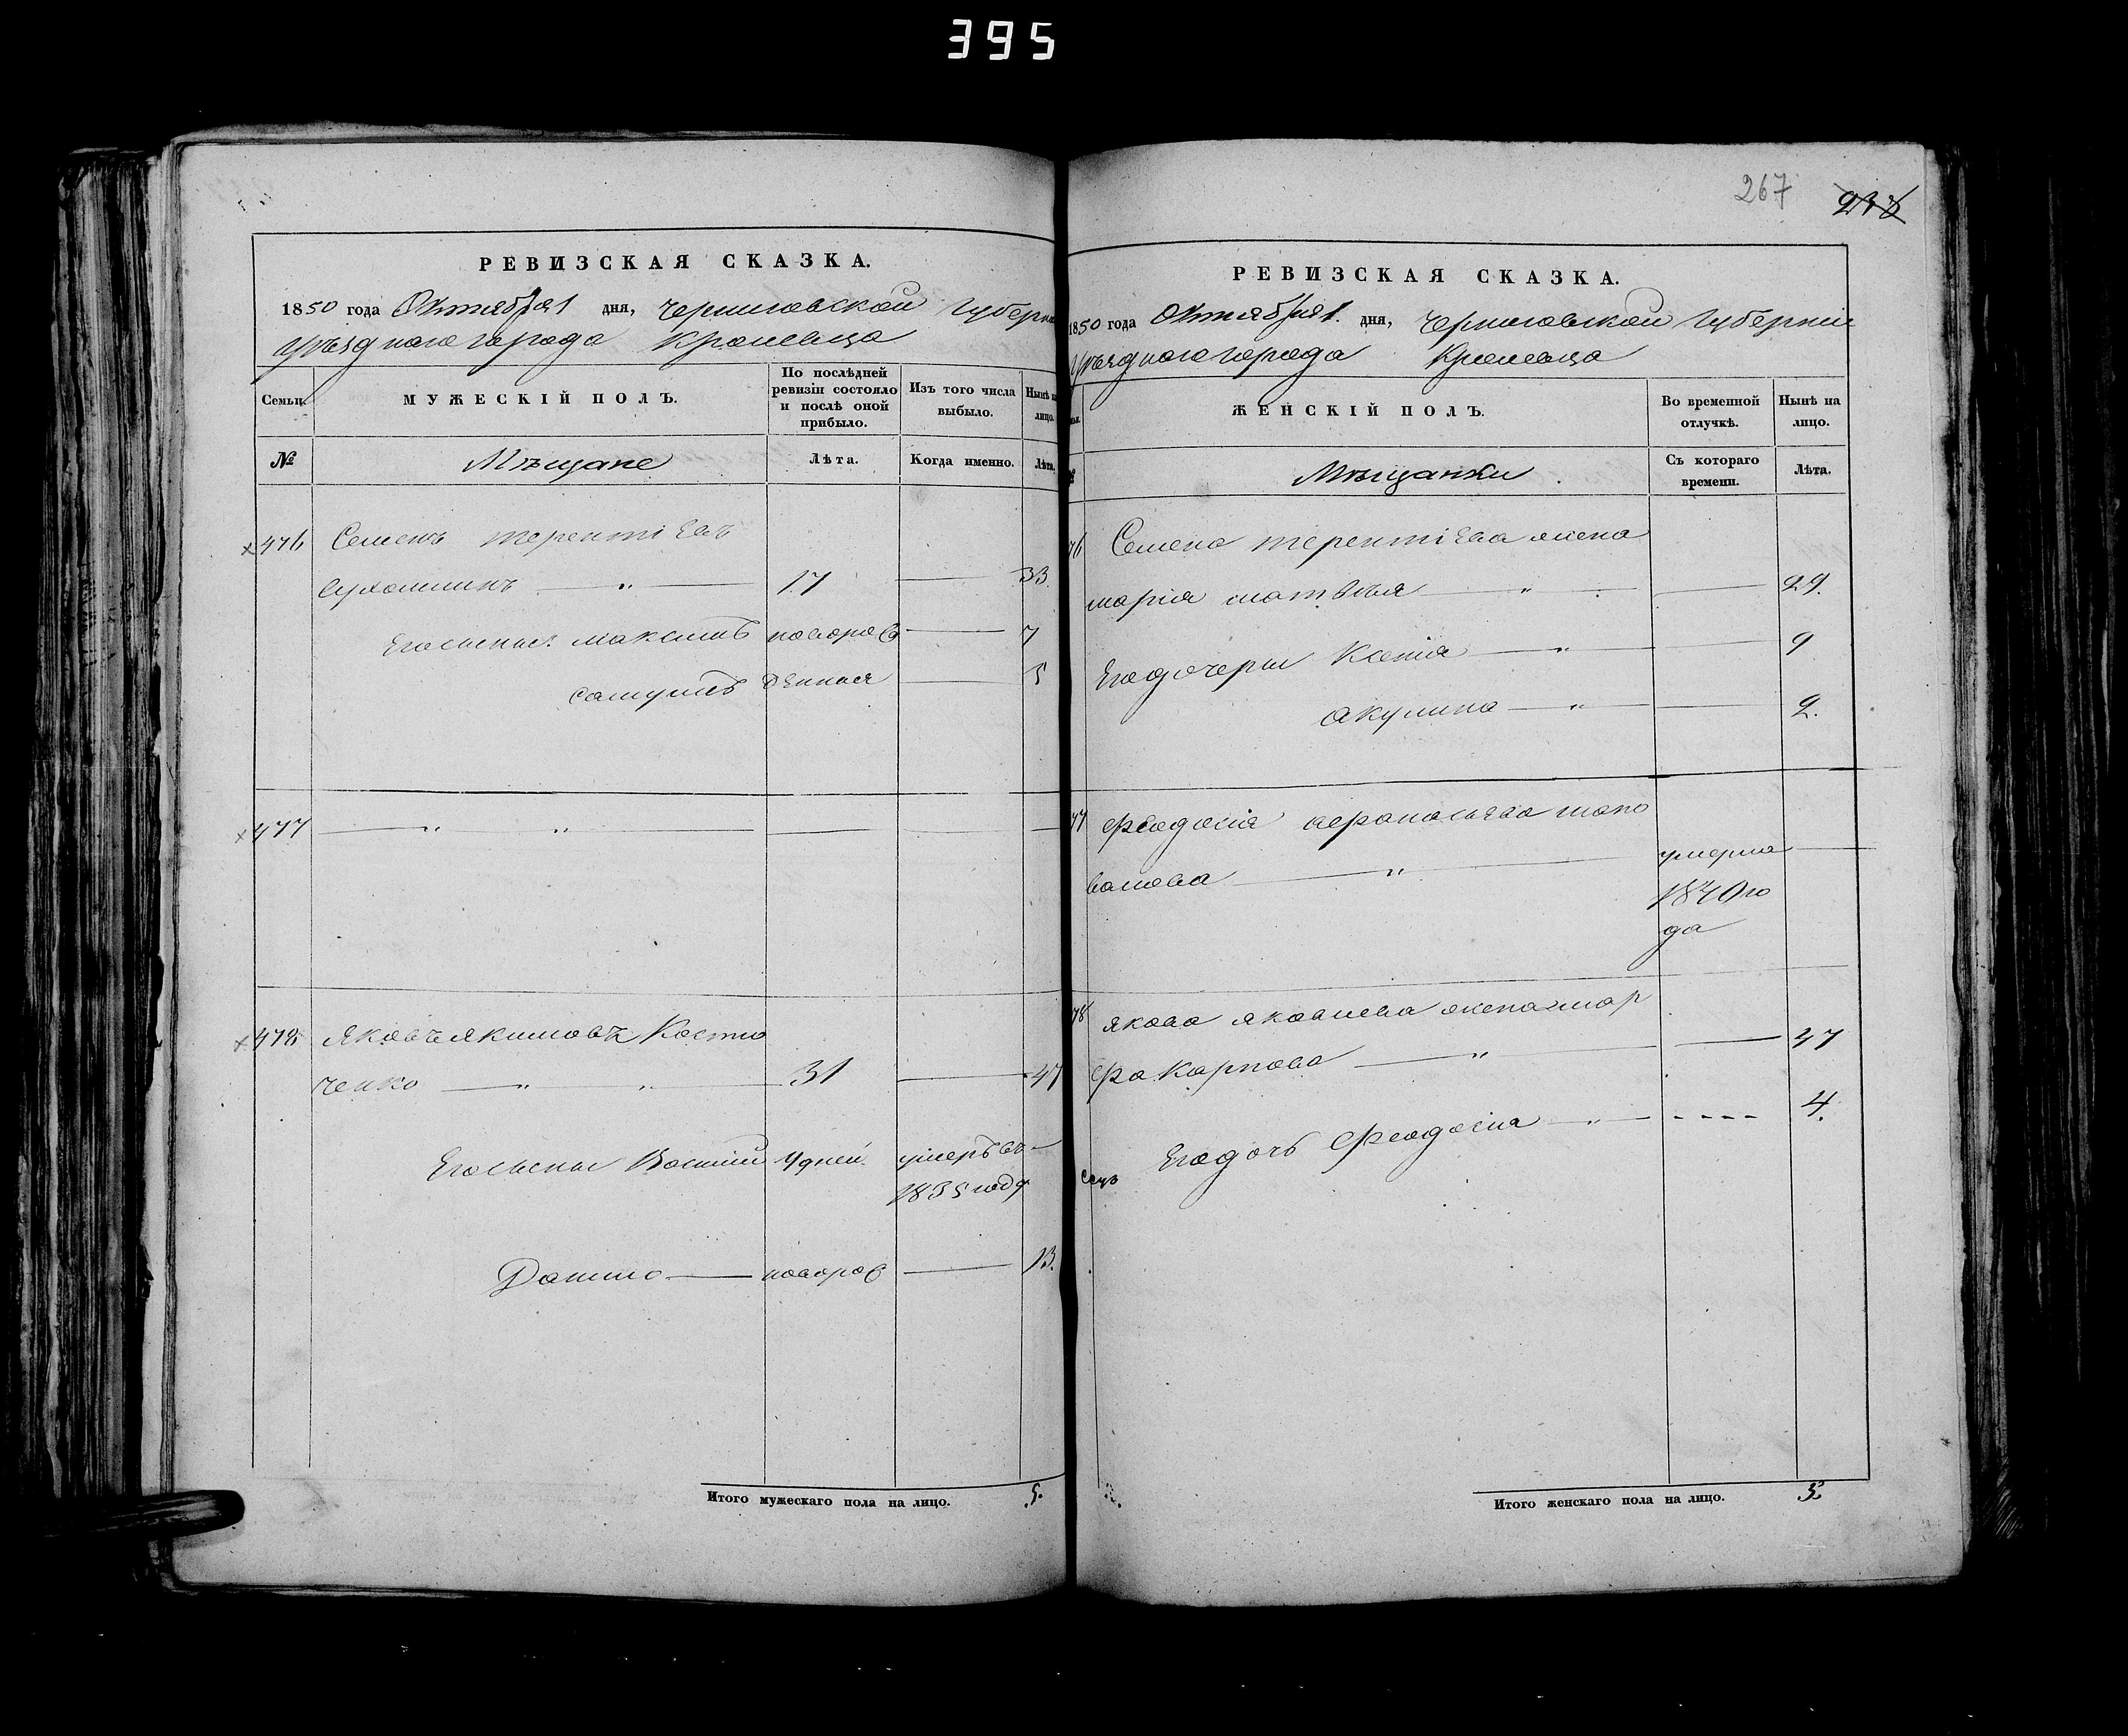 395
267
РЕВИЗСКАЯ СКАЗКА.
1850 года Октября 1 дня, Черниговской Губерніи
Уѣзднаго города Кролевца
Семьи.
МУЖЕСКІЙ ПОЛЪ.
По послѣдней ревизіи состояло и послѣ оной прибыло.
Изъ того числа выбыло.
Нынѣ на лицо.
№
Мѣщане
Лѣта.
Когда именно.
Лѣта.
476 Семенъ Терентіевъ
Сухомлинъ — " — 17 — 33.
Его сыны: Максимъ новорож — 7
Самуилъ денныя — 5
477 — " " —
478 Яковъ Якимовъ Костю
ченко — " " — 31 — 47
Его сыны Василий 4 дней умеръ въ —
1835 году
Данило — новорож — 13.
Итого мужескаго пола на лицо. 5.
РЕВИЗСКАЯ СКАЗКА.
1850 года Октября 1. дня, Черниговской Губерніи
Уѣзднаго города Кролевца
ЖЕНСКІЙ ПОЛЪ.
Во временной отлучкѣ.
Нынѣ на лицо.
Мѣщанки
Съ котораго времени.
Лѣта.
76 Семена Терентіева жена
Марія — " — — 29.
Его дочери Ксенія — " — — 9
Акулина — " — — 2.
77 Феодосія
— " — умерла —
1840 го
да
78 Якова Яковлева жена Мар
фа Карпова — " — — 47
Его дочь Феодосія — " — - - - - 4.
Итого женскаго пола на лицо. 5.